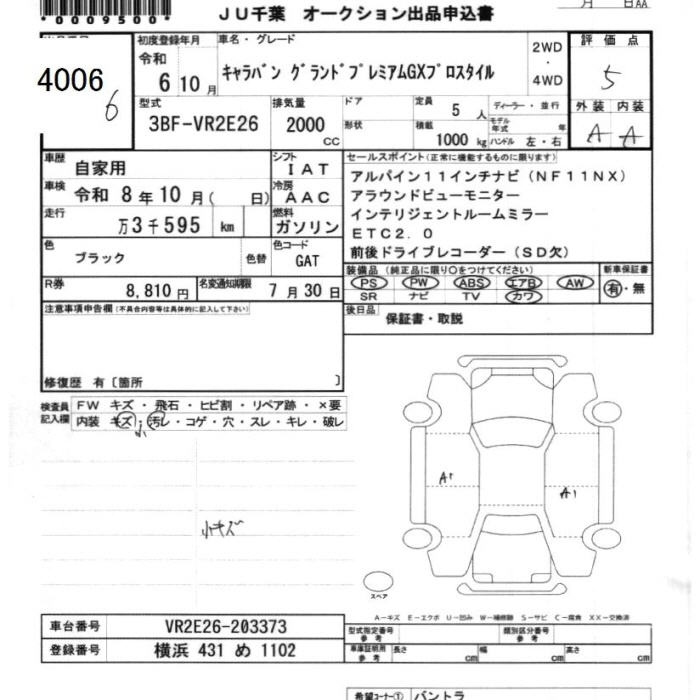 *0009500*
JU千葉 オークション出品申込書
月 日AA
4006
6
初度登録年月
令和
6 10月
車名・グレード
キャラバン グランドプレミアムGXプロスタイル
2WD
・
4WD
評価点
5
型式
3BF-VR2E26
排気量
2000
CC
ドア
形状
定員
5 人
積載
1000 kg
ディーラー・並行
モデル年式 年
ハンドル 左・右
外装 内装
A A
車歴
自家用
シフト
IAT
車検
令和 8年10月( 日)
冷房
AAC
走行
万3千595 km
燃料
ガソリン
色
ブラック
色替
色コード
GAT
R券
8,810円
名変通知期限
7月30日
セールスポイント(正常に機能するものに限ります)
アルパイン11インチナビ(NF11NX)
アラウンドビューモニター
インテリジェントルームミラー
ETC2.0
前後ドライブレコーダー(SD欠)
装備品(純正品に限り○をつけてください)
PS PW ABS エアB AW
SR ナビ TV カワ
新車保証書
有・無
後日品
保証書・取説
注意事項申告欄(不具合内容等は具体的に記入して下さい)
修復歴 有〔箇所 〕
検査員記入欄
FW キズ・飛石・ヒビ割・リペア跡・×要
内装 キズ・汚レ・コゲ・穴・スレ・キレ・破レ
小
小キズ
A1
A1
スペア
A－キズ E－エクボ U－凹み W－補修跡 S－サビ C－腐食 XX－交換済
車台番号
VR2E26-203373
登録番号
横浜 431 め 1102
型式指定番号
参考
類別区分番号
参考
車庫証明用
参考
長さ cm
幅 cm
高さ cm
希望コーナー① バントラ